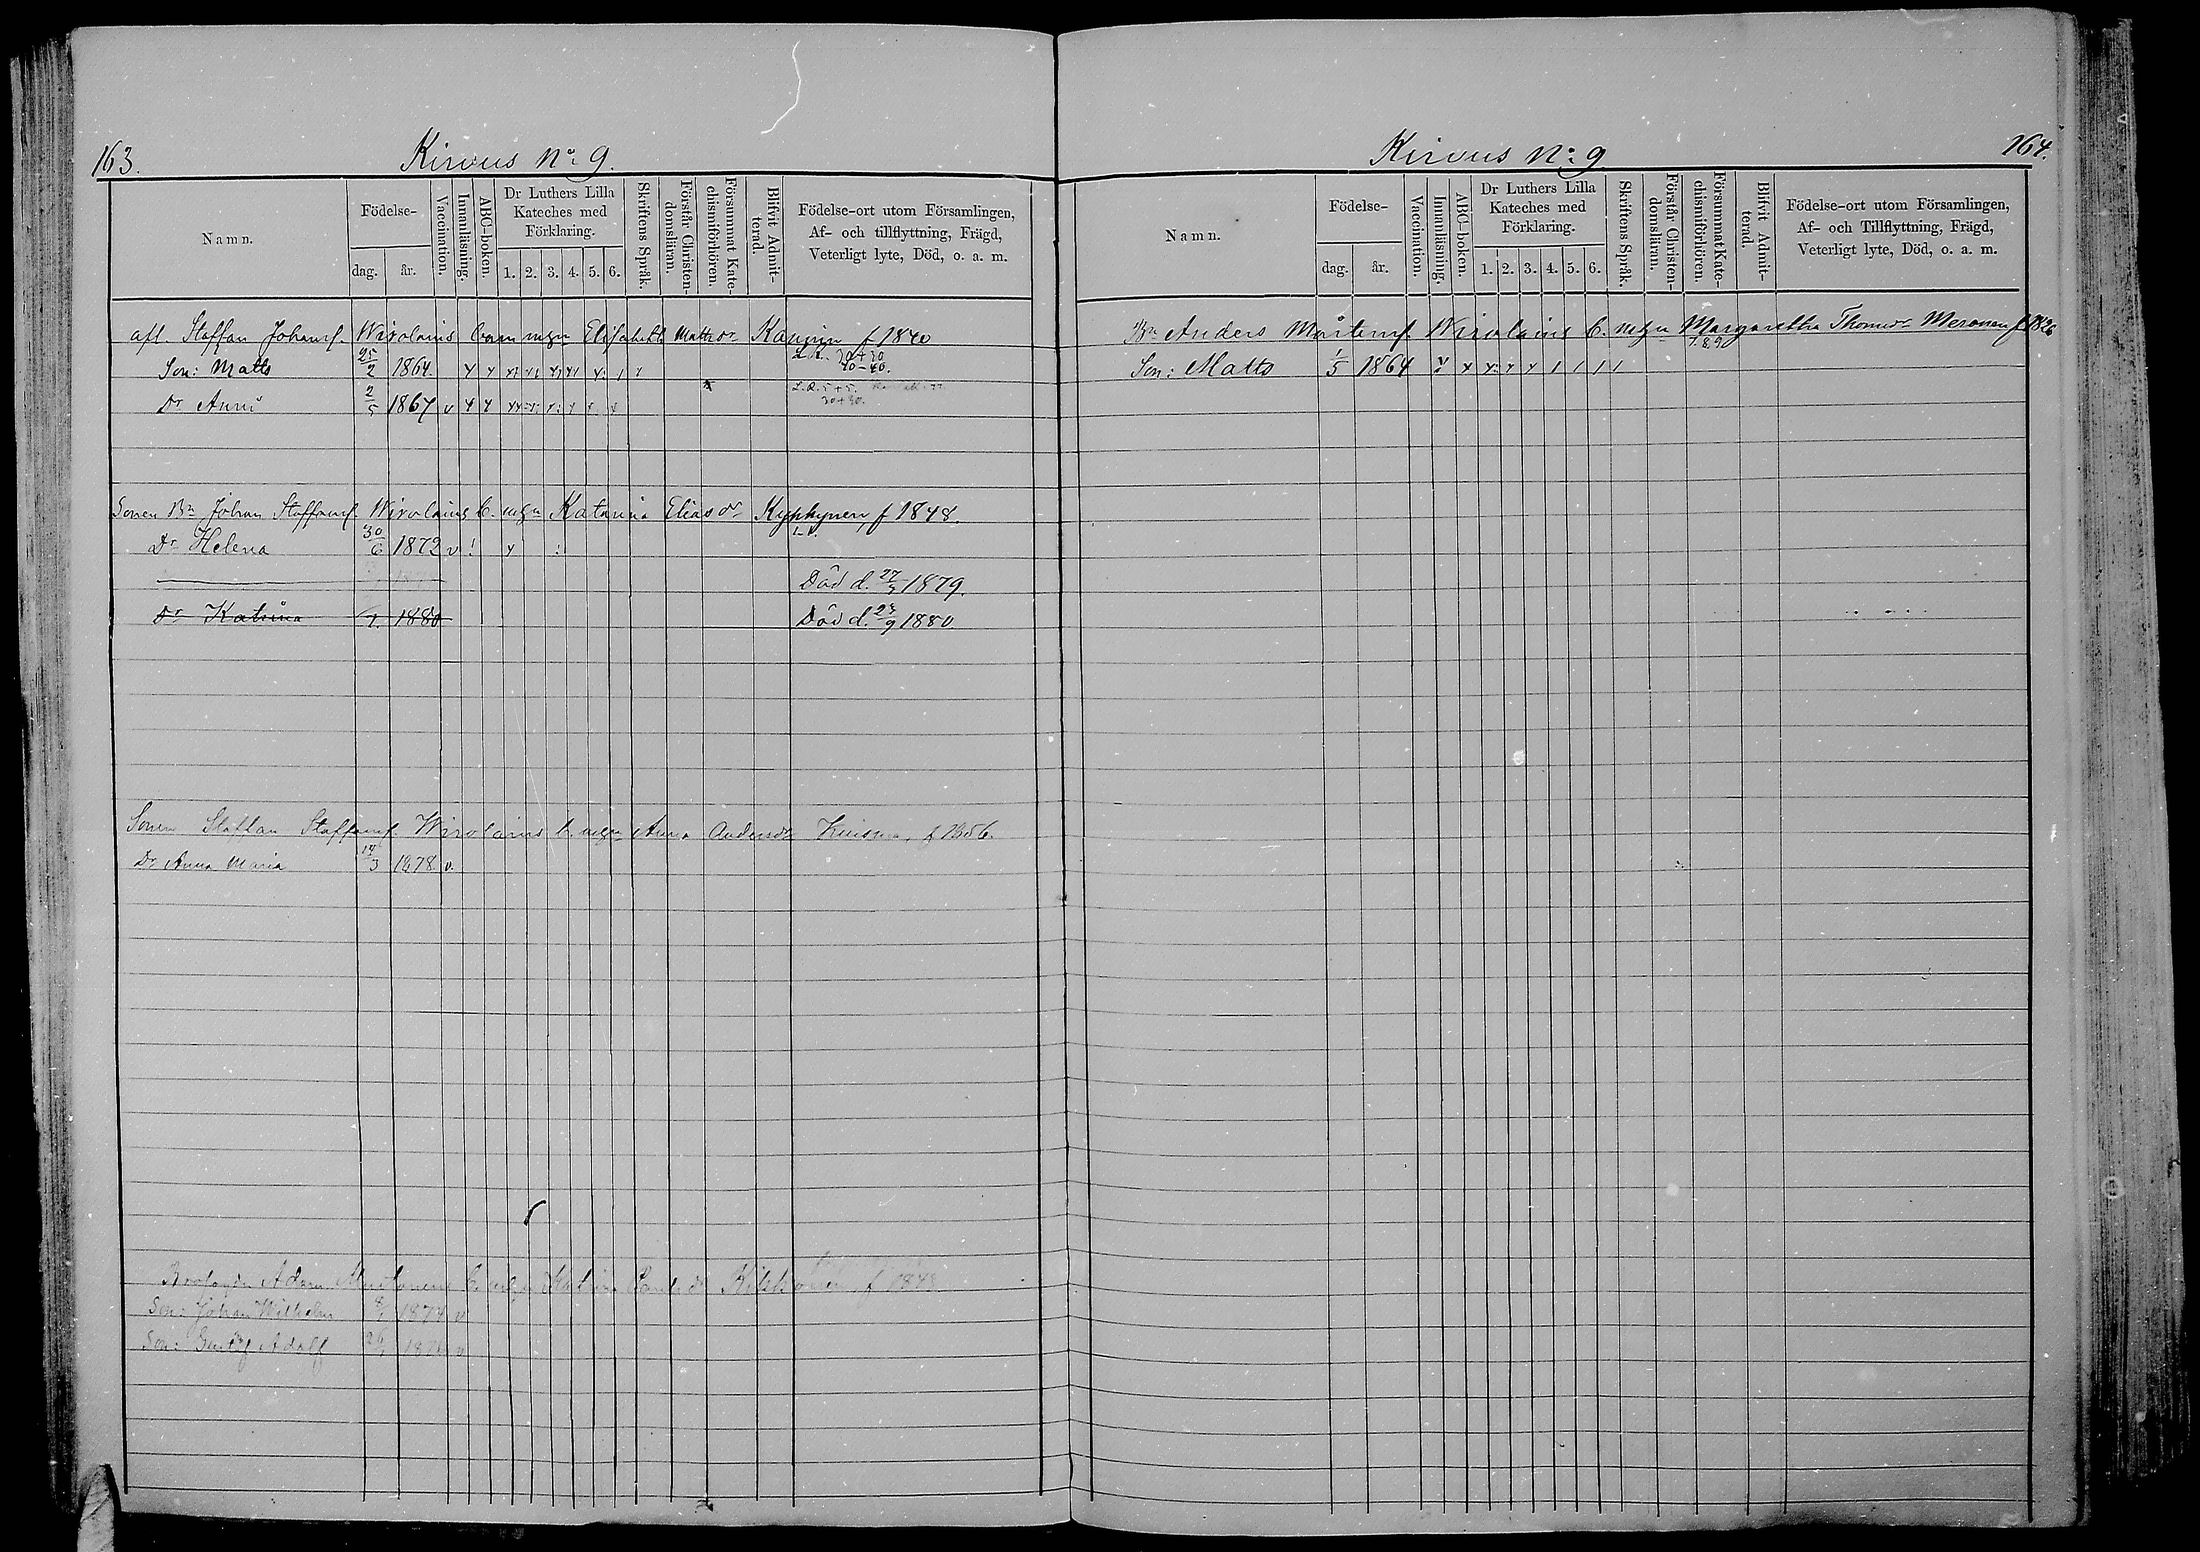 163.
Kirvus No 9.
Namn.
Födelse-
dag.
år.
Vaccination.
Innanläsning.
ABC-boken.
Dr Luthers Lilla
Kateches med
Förklaring.
1. 2. 3. 4. 5. 6.
Skriftens Språk.
Förstår Christen-
domsläran.
Försummat Kate-
chismiförhören.
Blifvit Admit-
terad.
Födelse-ort utom Församlingen,
Af- och tillflyttning, Frägd,
Veterligt lyte, Död, o. a. m.
afl. Staffan Johansf. Wirolains barn m Elisabeth Matts dr f 1840
Son: Matts 25/2 1864
Dr Anni 2/5 1867 v
Sonen Bn Johan Staffansf. Wirolains b. Katarina Elias dr Kyphynen, f 1848.
Dr Helena 30/6 1872 v
Död d. 27/3 1879.
Dr Katrina 1880 Död d. 23/9 1880.
Sonen Staffan Staffansf. Wirolains b. Anna Anders dr Kuisma, f 1856.
Dr Anna Maria 14/3 1878 v.
Adam Mustonens b. Katrin Kikkonen, f 184
Son: Johan Wilhelm 1874 v
Son: Gustaf Adolf 26 187 v
Kirvus No 9
164.
Namn.
Födelse-
dag.
år.
Vaccination.
Innanläsning.
ABC-boken.
Dr Luthers Lilla
Kateches med
Förklaring.
1. 2. 3. 4. 5. 6.
Skriftens Språk.
Förstår Christen-
domsläran.
Försummat Kate-
chismiförhören.
Blifvit Admit-
terad.
Födelse-ort utom Församlingen,
Af- och Tillflyttning, Frägd,
Veterligt lyte, Död, o. a. m.
Bn Anders Mårtensf. Wirolains b. Margaretha Thomas dr Meronen f 1826
Son: Matts 1/5 1864